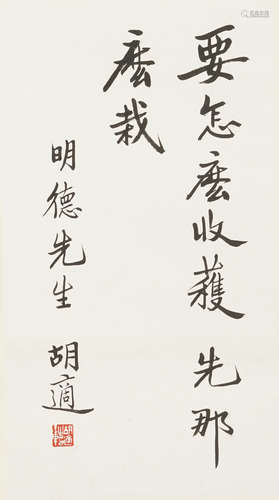 要怎麽收穫先那
麽栽
明德先生 胡適